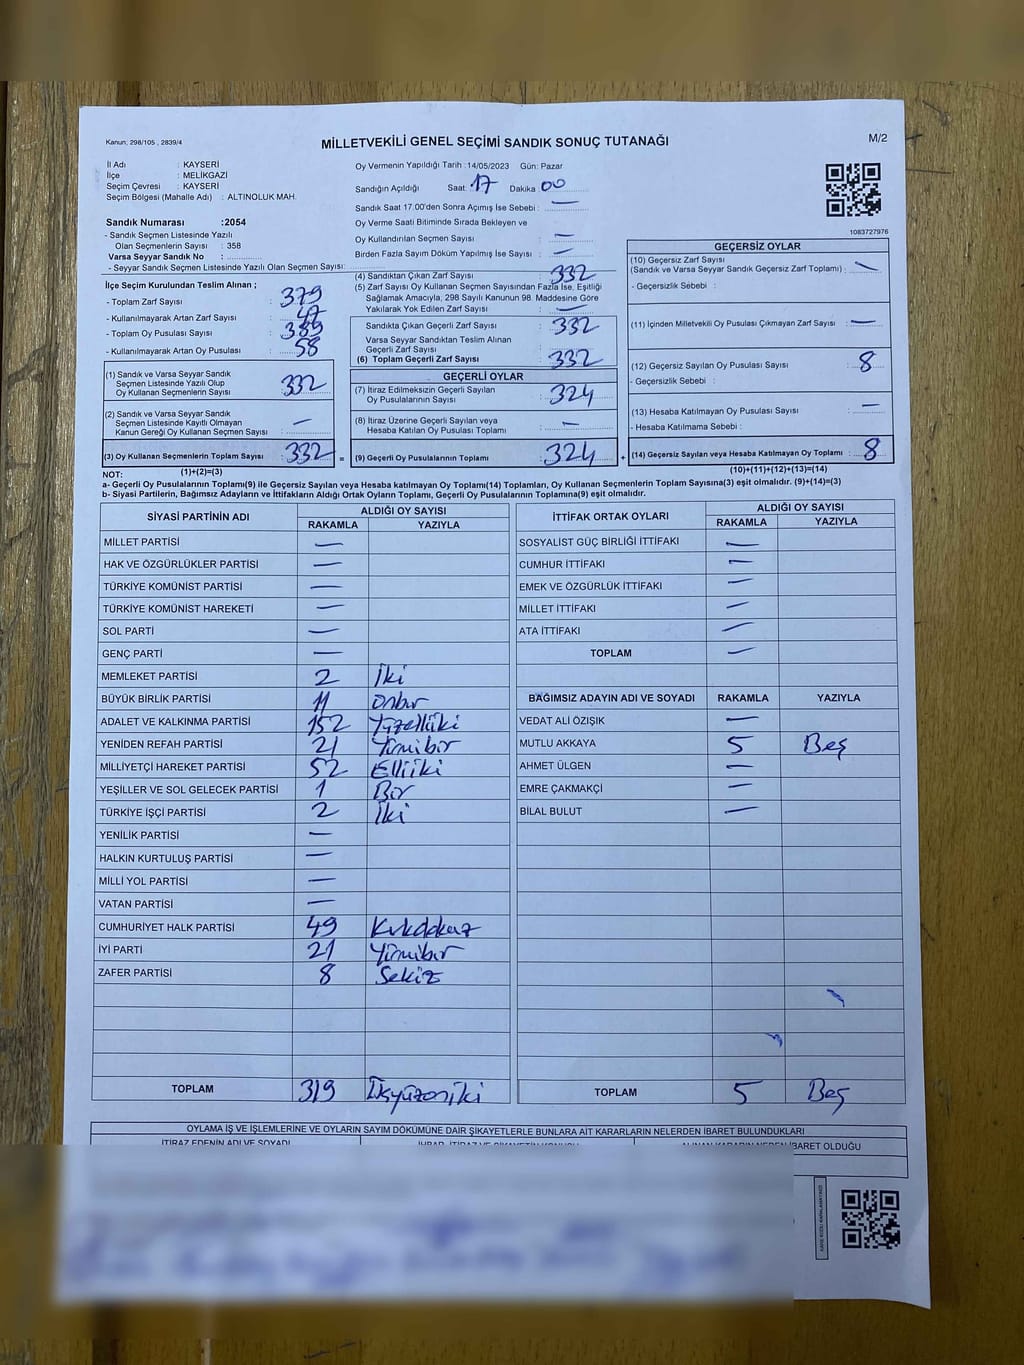 Kanun; 298/105 , 2839/4
MİLLETVEKİLİ GENEL SEÇİMİ SANDIK SONUÇ TUTANAĞI
M/2
İl Adı : KAYSERİ
İlçe : MELİKGAZİ
Seçim Çevresi : KAYSERİ
Seçim Bölgesi (Mahalle Adı) : ALTINOLUK MAH.
Sandık Numarası :2054
- Sandık Seçmen Listesinde Yazılı
Olan Seçmenlerin Sayısı : 358
Varsa Seyyar Sandık No :
- Seyyar Sandık Seçmen Listesinde Yazılı Olan Seçmen Sayısı:
Oy Vermenin Yapıldığı Tarih :14/05/2023 Gün: Pazar
Sandığın Açıldığı Saat : 17 Dakika 00
Sandık Saat 17.00'den Sonra Açımış İse Sebebi : —
Oy Verme Saati Bitiminde Sırada Bekleyen ve
Oy Kullandırılan Seçmen Sayısı : —
Birden Fazla Sayım Döküm Yapılmış İse Sayısı : —
1083727976
İlçe Seçim Kurulundan Teslim Alınan ;
- Toplam Zarf Sayısı : 379
- Kullanılmayarak Artan Zarf Sayısı : 47
- Toplam Oy Pusulası Sayısı : 389
- Kullanılmayarak Artan Oy Pusulası : 58
(1) Sandık ve Varsa Seyyar Sandık
Seçmen Listesinde Yazılı Olup
Oy Kullanan Seçmenlerin Sayısı : 332
(2) Sandık ve Varsa Seyyar Sandık
Seçmen Listesinde Kayıtlı Olmayan
Kanun Gereği Oy Kullanan Seçmen Sayısı : —
(3) Oy Kullanan Seçmenlerin Toplam Sayısı : 332 =
(1)+(2)=(3)
(4) Sandıktan Çıkan Zarf Sayısı : 332
(5) Zarf Sayısı Oy Kullanan Seçmen Sayısından Fazla İse, Eşitliği
Sağlamak Amacıyla, 298 Sayılı Kanunun 98. Maddesine Göre
Yakılarak Yok Edilen Zarf Sayısı : —
Sandıkta Çıkan Geçerli Zarf Sayısı : 332
Varsa Seyyar Sandıktan Teslim Alınan
Geçerli Zarf Sayısı :
(6) Toplam Geçerli Zarf Sayısı : 332
GEÇERLİ OYLAR
(7) İtiraz Edilmeksizin Geçerli Sayılan
Oy Pusulalarının Sayısı : 324
(8) İtiraz Üzerine Geçerli Sayılan veya
Hesaba Katılan Oy Pusulası Toplamı : —
(9) Geçerli Oy Pusulalarının Toplamı : 324 +
GEÇERSİZ OYLAR
(10) Geçersiz Zarf Sayısı
(Sandık ve Varsa Seyyar Sandık Geçersiz Zarf Toplamı) : —
- Geçersizlik Sebebi :
(11) İçinden Milletvekili Oy Pusulası Çıkmayan Zarf Sayısı : —
(12) Geçersiz Sayılan Oy Pusulası Sayısı : 8
- Geçersizlik Sebebi :
(13) Hesaba Katılmayan Oy Pusulası Sayısı : —
- Hesaba Katılmama Sebebi :
(14) Geçersiz Sayılan veya Hesaba Katılmayan Oy Toplamı : 8
(10)+(11)+(12)+(13)=(14)
NOT:
a- Geçerli Oy Pusulalarının Toplamı(9) ile Geçersiz Sayılan veya Hesaba katılmayan Oy Toplamı(14) Toplamları, Oy Kullanan Seçmenlerin Toplam Sayısına(3) eşit olmalıdır. (9)+(14)=(3)
b- Siyasi Partilerin, Bağımsız Adayların ve İttifakların Aldığı Ortak Oyların Toplamı, Geçerli Oy Pusulalarının Toplamına(9) eşit olmalıdır.
SİYASİ PARTİNİN ADI ALDIĞI OY SAYISI
RAKAMLA YAZIYLA
MİLLET PARTİSİ —
HAK VE ÖZGÜRLÜKLER PARTİSİ —
TÜRKİYE KOMÜNİST PARTİSİ —
TÜRKİYE KOMÜNİST HAREKETİ —
SOL PARTİ —
GENÇ PARTİ —
MEMLEKET PARTİSİ 2 İki
BÜYÜK BİRLİK PARTİSİ 11 Onbir
ADALET VE KALKINMA PARTİSİ 152 Yüzelliiki
YENİDEN REFAH PARTİSİ 21 Yirmibir
MİLLİYETÇİ HAREKET PARTİSİ 52 Elliiki
YEŞİLLER VE SOL GELECEK PARTİSİ 1 Bir
TÜRKİYE İŞÇİ PARTİSİ 2 İki
YENİLİK PARTİSİ —
HALKIN KURTULUŞ PARTİSİ —
MİLLİ YOL PARTİSİ —
VATAN PARTİSİ —
CUMHURİYET HALK PARTİSİ 49 Kırkdokuz
İYİ PARTİ 21 Yirmibir
ZAFER PARTİSİ 8 Sekiz
TOPLAM 319
İTTİFAK ORTAK OYLARI ALDIĞI OY SAYISI
RAKAMLA YAZIYLA
SOSYALİST GÜÇ BİRLİĞİ İTTİFAKI —
CUMHUR İTTİFAKI —
EMEK VE ÖZGÜRLÜK İTTİFAKI —
MİLLET İTTİFAKI —
ATA İTTİFAKI —
TOPLAM —
BAĞIMSIZ ADAYIN ADI VE SOYADI RAKAMLA YAZIYLA
VEDAT ALİ ÖZIŞIK —
MUTLU AKKAYA 5 Beş
AHMET ÜLGEN —
EMRE ÇAKMAKÇİ —
BİLAL BULUT —
TOPLAM 5 Beş
OYLAMA İŞ VE İŞLEMLERİNE VE OYLARIN SAYIM DÖKÜMÜNE DAİR ŞİKAYETLERLE BUNLARA AİT KARARLARIN NELERDEN İBARET BULUNDUKLARI
İTİRAZ EDENİN ADI VE SOYADI
ALINAN KARARIN NEDEN İBARET OLDUĞU